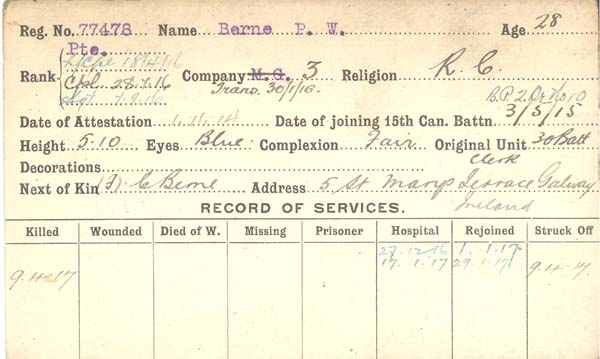 Reg. No. 77478 Name Berne P. W. Age 28
Pte.
L/Cpl 18/4/16
Rank Cpl 28.7.16 Company M.G. 3 Religion R.C.
Sgt 7.9.16 Trans. 30/1/16. B.P.2.Or.No10
Date of Attestation 1.11.14 Date of joining 15th Can. Battn. 3/5/15
Height 5-10 Eyes Blue Complexion Fair Original Unit 30 Batt
Decorations Clerk
Next of Kin (F) C Berne Address 5 St Marys Terrace Galway
Ireland
RECORD OF SERVICES.
Killed Wounded Died of W. Missing Prisoner Hospital Rejoined Struck Off
27.12.16 1.1.17
9.4.17 17.1.17 29.1.17 9.4.17.